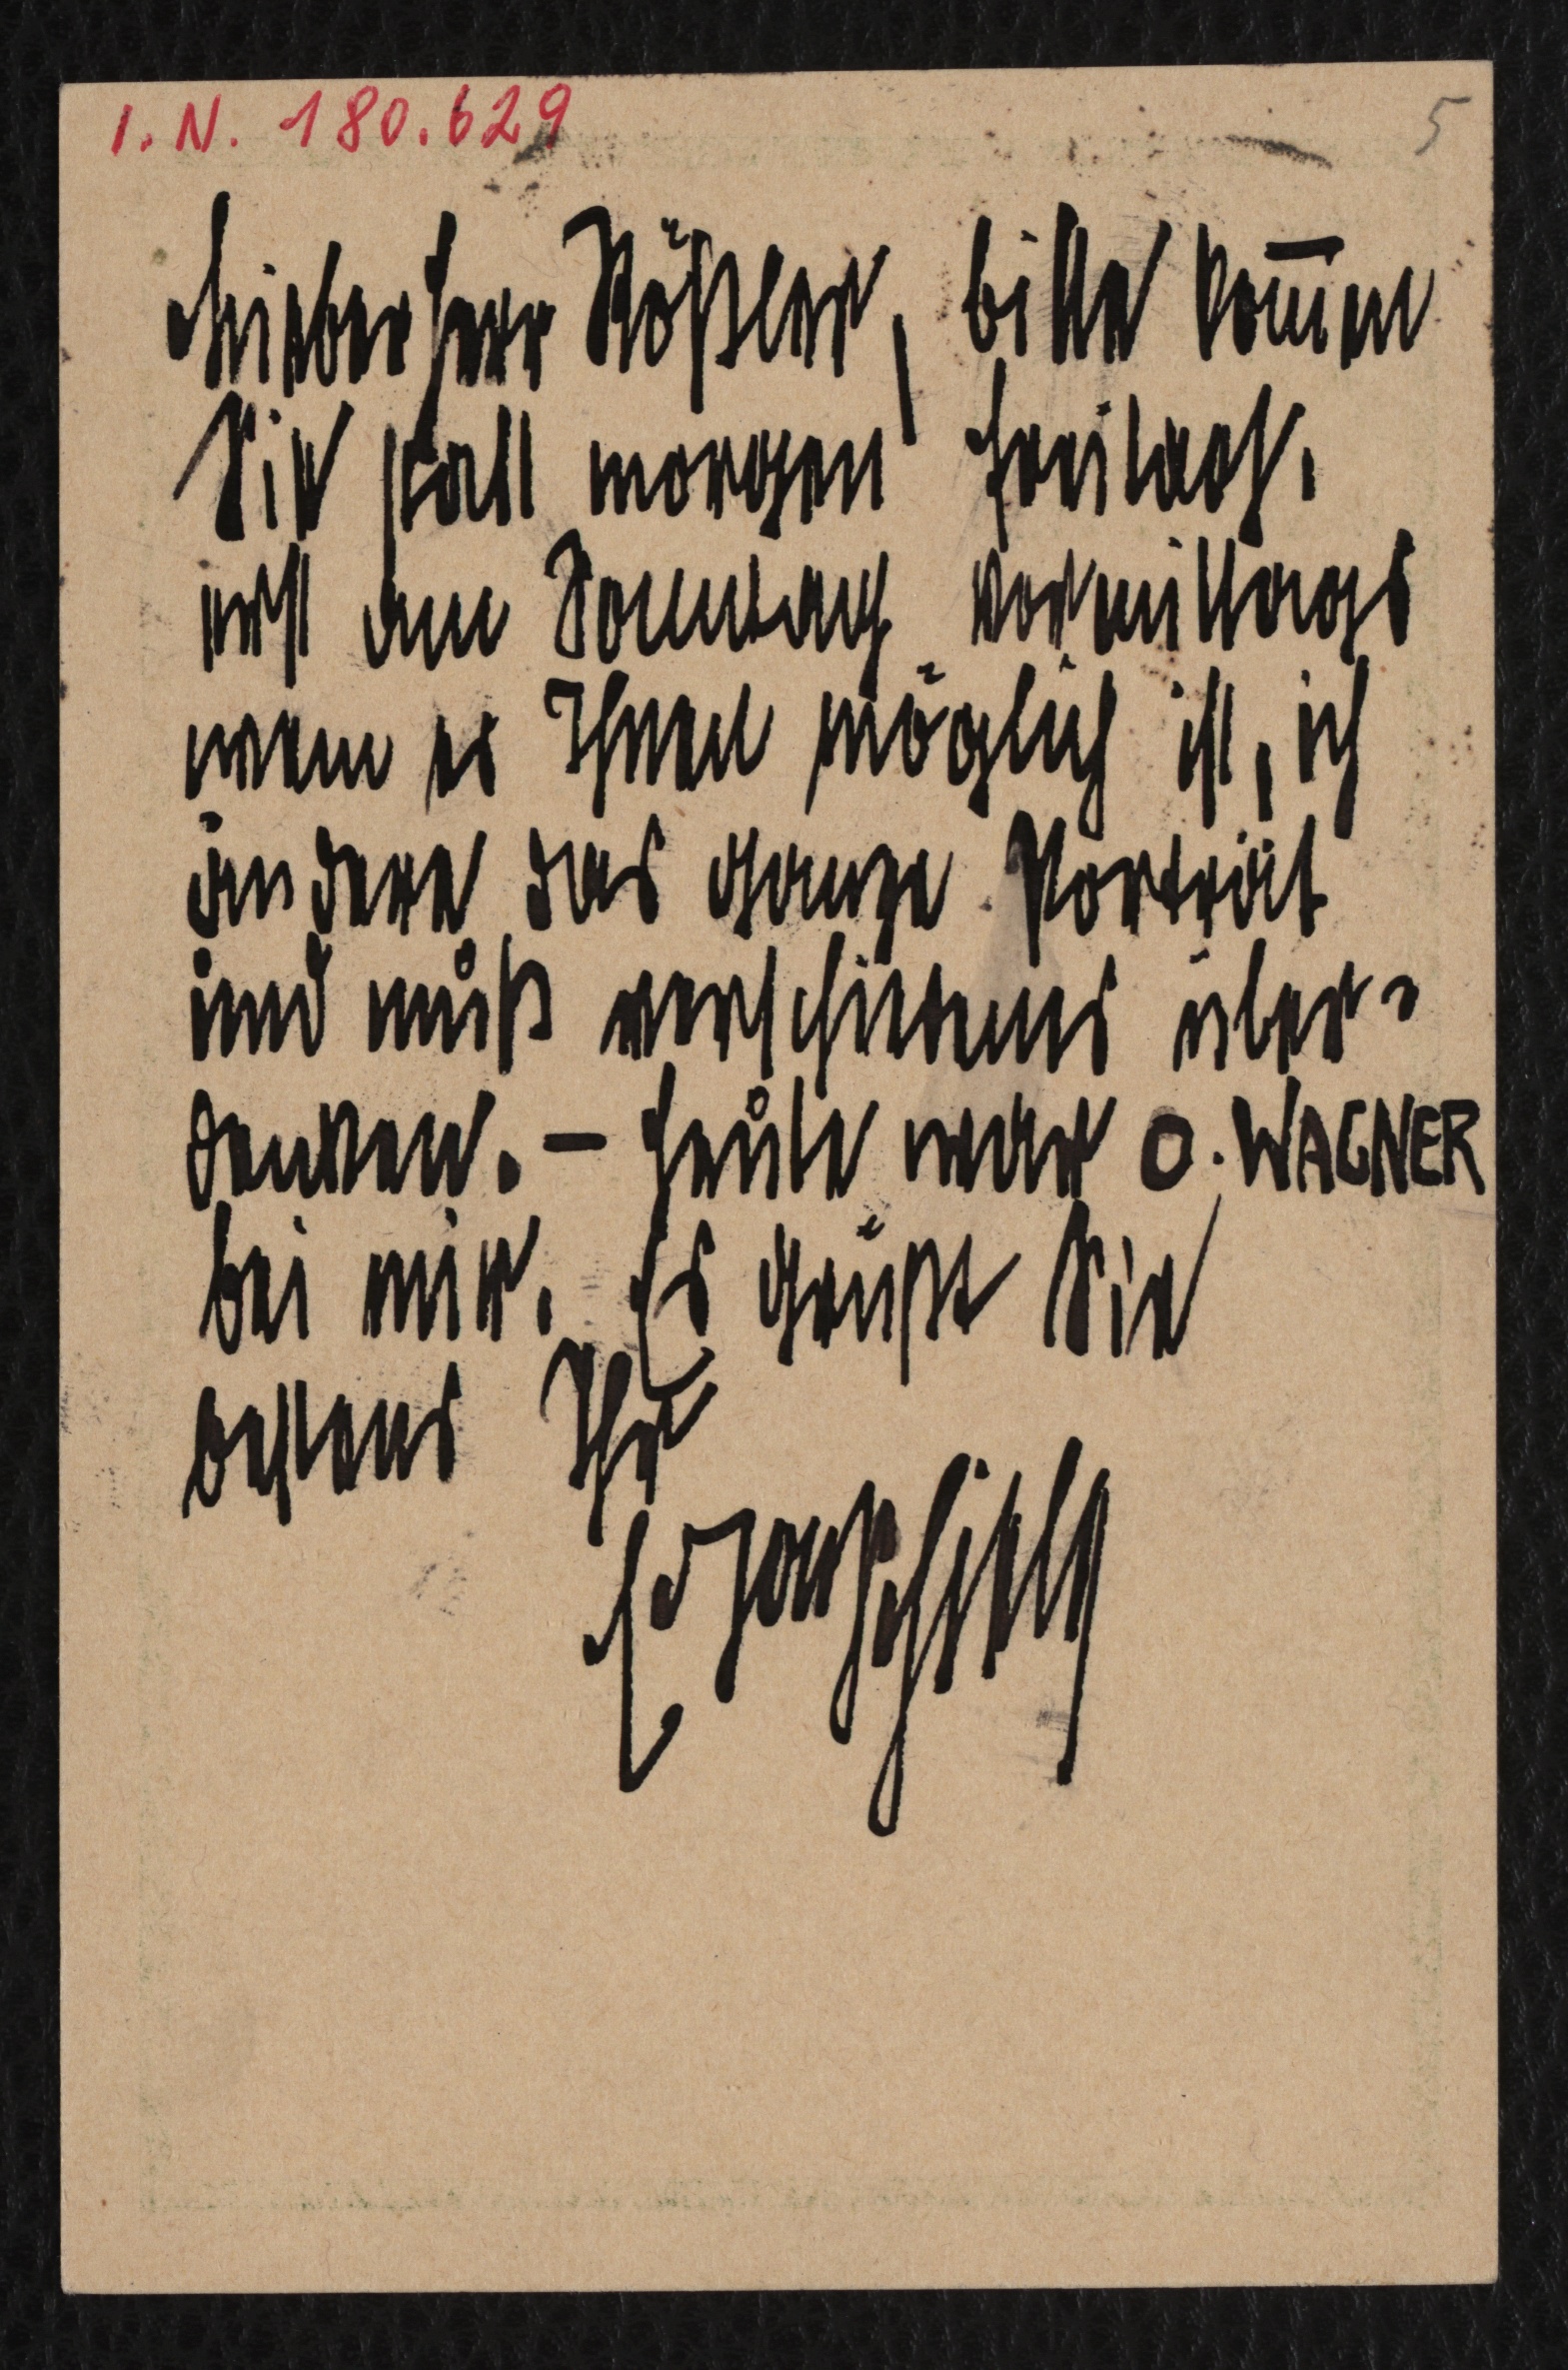 I. N. 180.629
5
Lieber Herr Rößler, bitte kom̄en
Sie statt morgen Freitag,
erst am Sonntag vormittags
wenn es Ihnen möglich ist, ich
ändere das ganze Porträt
und muß verschiedenes über=
denken. – Heute war O. WAGNER
bei mir. Es grüßt Sie
bestens Ihr
Egon Schiele